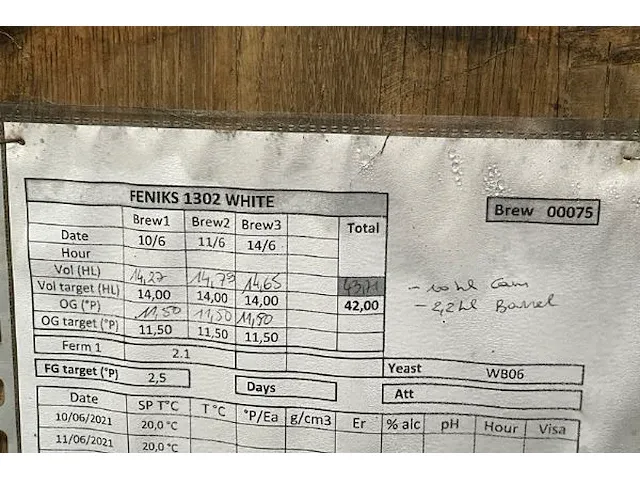 FENIKS 1302 WHITE
Brew 00075
Brew1 Brew2 Brew3 Total
Date 10/6 11/6 14/6
Hour
Vol (HL) 14,27 14,79 14,65 43,71
Vol target (HL) 14,00 14,00 14,00 42,00
OG (°P) 11,50 11,50 11,50
OG target (°P) 11,50 11,50 11,50
- 10 hl
- 2,2 hl Barrel
Ferm 1 2.1
FG target (°P) 2,5
Days
Yeast WB06
Att
Date SP T°C T °C °P/Ea g/cm3 Er % alc pH Hour Visa
10/06/2021 20,0 °C
11/06/2021 20,0 °C